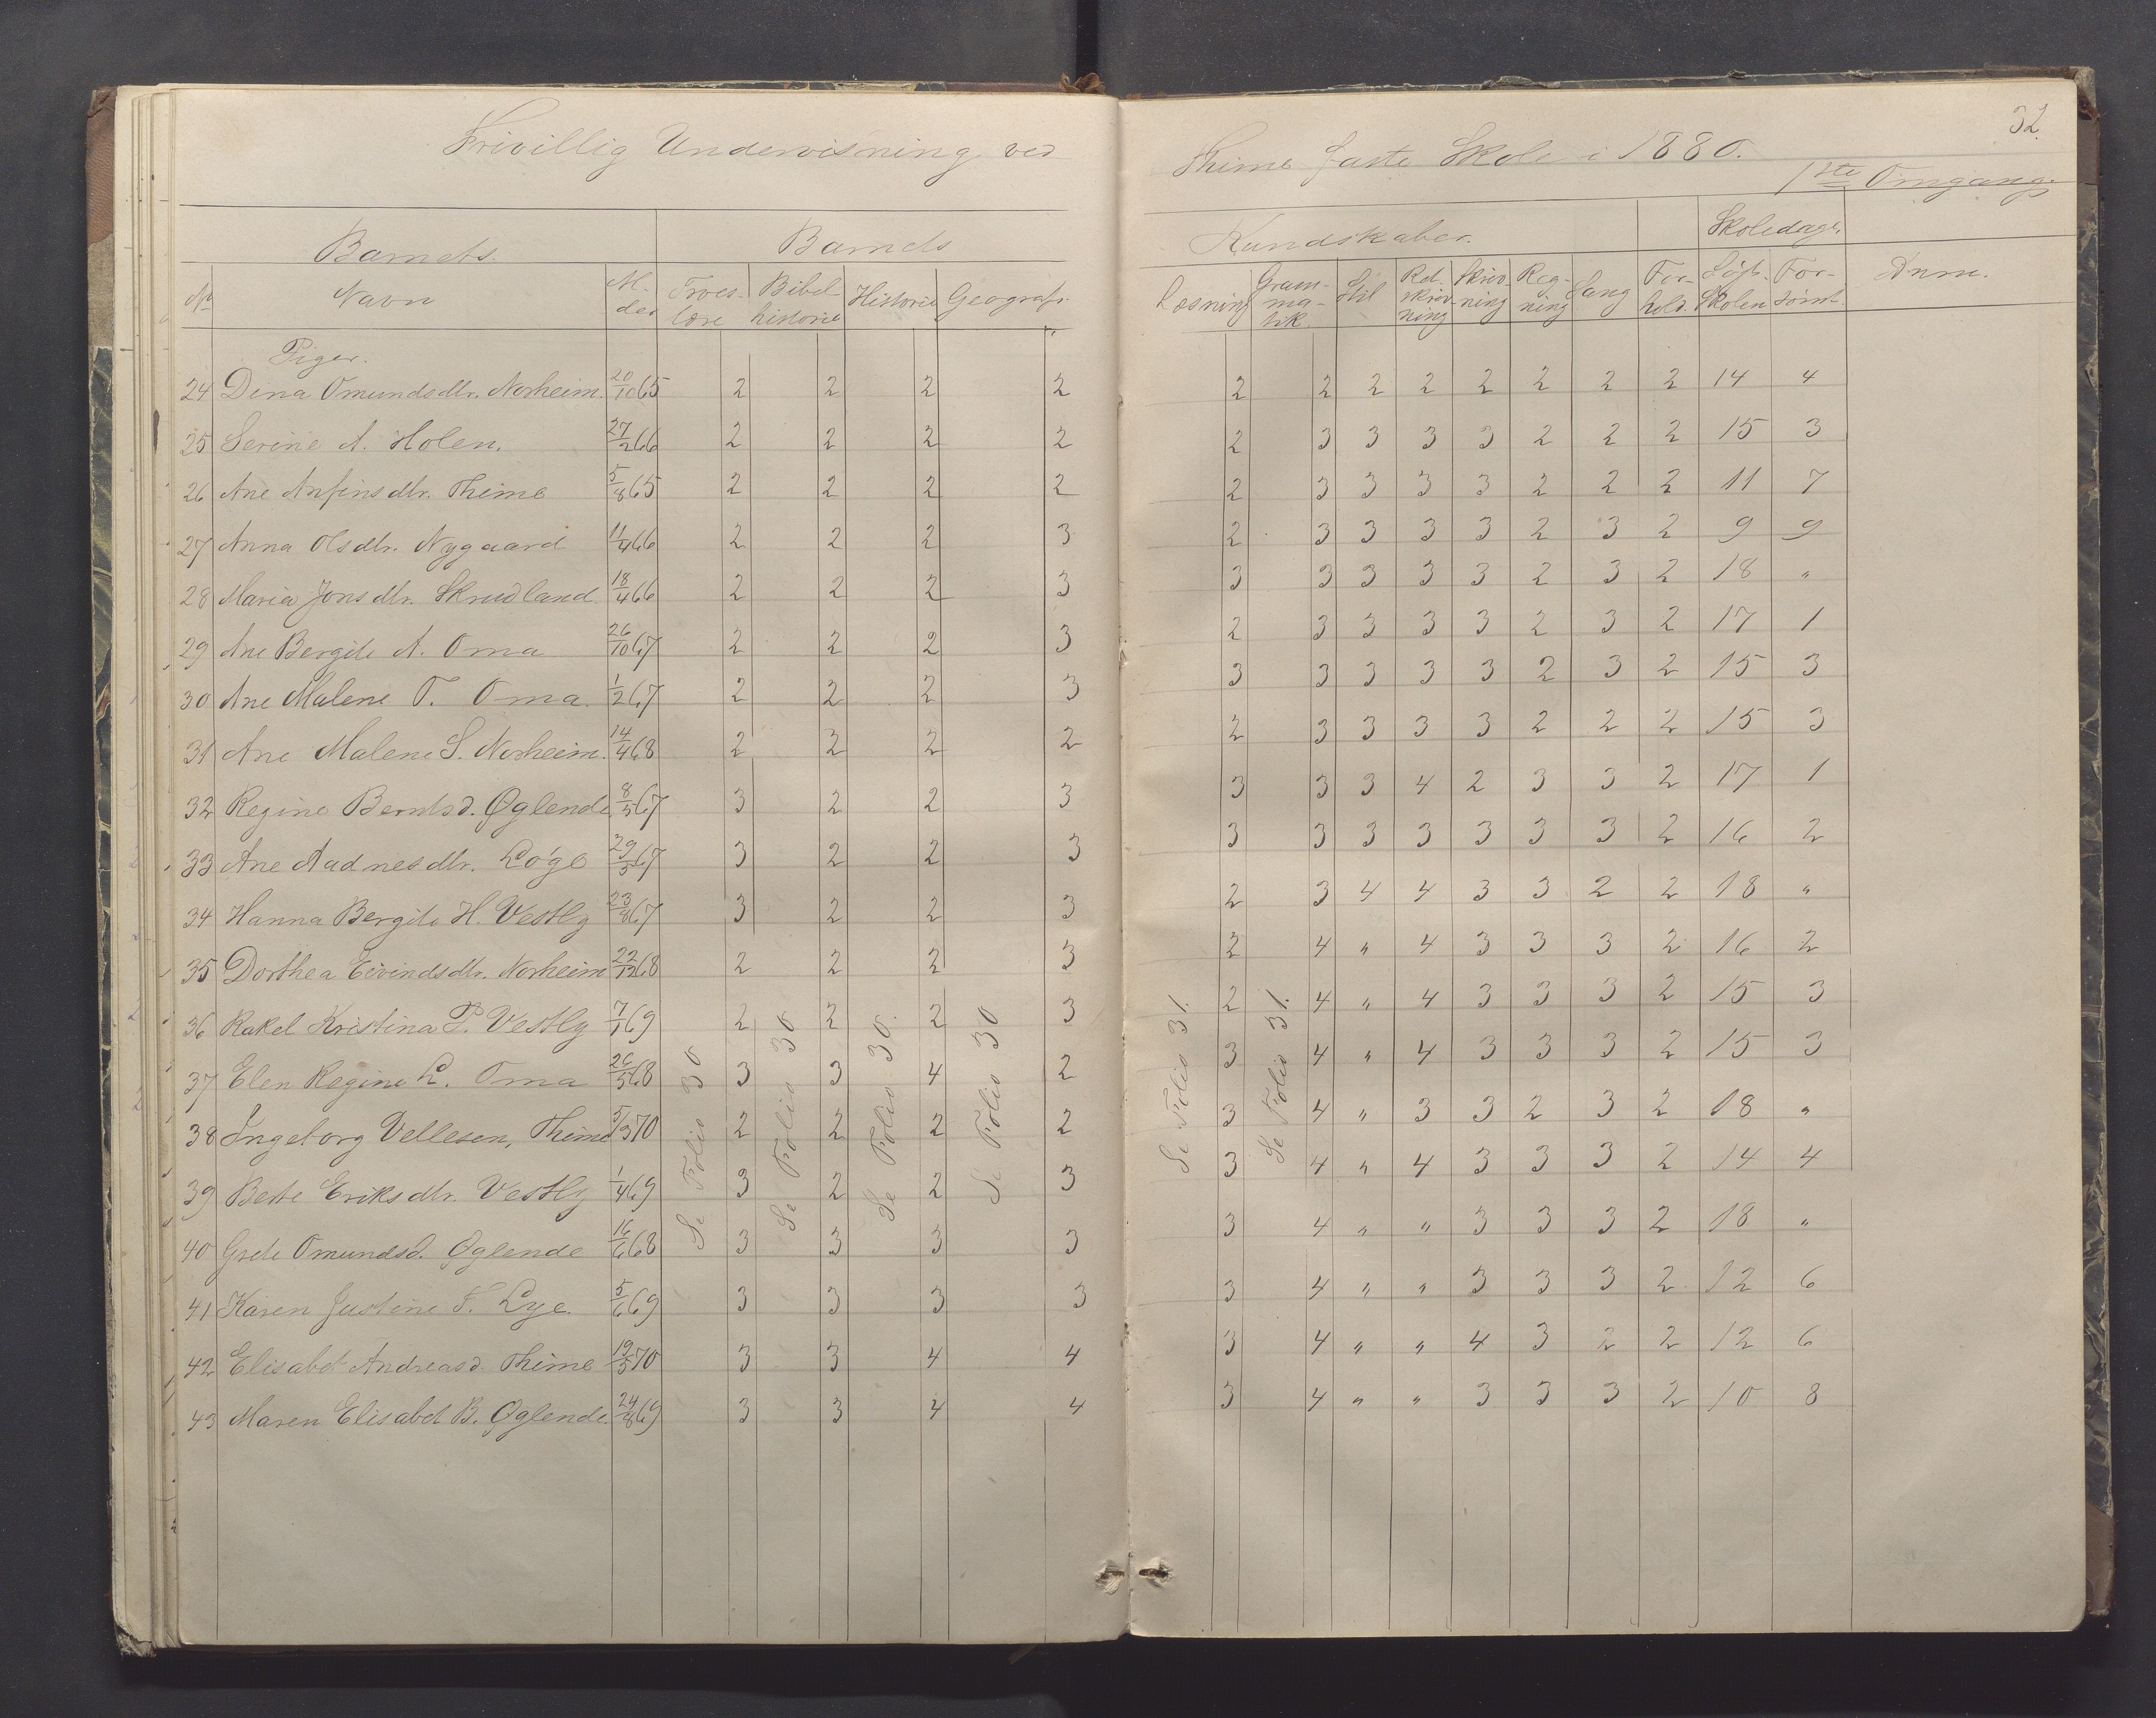 Frivillig Undervisning ved
Barnets. Barnets
No Navn M. der Troes- lære Bibel- historie Historie Geografi.
Piger.
24 Dina Omundsdtr. Norheim. 20/10 65 2 2 2 2
25 Serine A. Holen. 27/2 66 2 2 2 2
26 Ane Anfinsdtr. Thime 5/8 65 2 2 2 2
27 Anna Olsdtr. Nygaard 11/4 66 2 2 2 3
28 Maria Jonsdtr. Skrudland 18/4 66 2 2 2 3
29 Ane Bergite A. Oma 26/10 67 2 2 2 3
30 Ane Malene T. Oma. 1/2 67 2 2 2 3
31 Ane Malene S. Norheim. 14/4 68 2 2 2 2
32 Regine Berntsd. Øglende 8/5 67 3 2 2 3
33 Ane Aadnesdtr. Løge 29/5 67 3 2 2 3
34 Hanna Bergite H. Vestly 23/8 67 3 2 2 3
35 Dorthea Eivindsdtr. Norheim 22/12 68 2 2 2 3
36 Rakel Kristina P. Vestly 7/1 69 2 2 2 3
37 Elen Regine L. Oma 26/5 68 3 3 4 2
38 Ingeborg Vellesen, Thime 5/3 70 2 2 2 2
39 Berte Eriksdtr. Vestly 1/4 69 3 2 2 3
40 Grete Omundsd. Øglende 16/6 68 3 3 3 3
41 Karen Justine T. Lye. 5/6 69 3 3 3 3
42 Elisabet Andreasd. Thime 19/5 70 3 3 4 4
43 Maren Elisabet B. Øglende. 24/8 69 3 3 4 4
Se Folio 30
Se Folio 30
Se Folio 30.
Se Folio 30
32.
Thime faste Skole i 1880.
1ste Omgang.
Kundskaber. Skoledage.
Læsning Gram- ma- tik. Stil Ret skriv ning Skriv ning Reg- ning Sang For- hold. Søgt Skolen For- sømt. Anm.
2 2 2 2 2 2 2 2 14 4
2 3 3 3 3 2 2 2 15 3
2 3 3 3 3 2 2 2 11 7
2 3 3 3 3 2 3 2 9 9
3 3 3 3 3 2 3 2 18 "
2 3 3 3 3 2 3 2 17 1
3 3 3 3 3 2 3 2 15 3
2 3 3 3 3 2 2 2 15 3
3 3 3 4 2 3 3 2 17 1
3 3 3 3 3 3 3 2 16 2
2 3 4 4 3 3 2 2 18 "
2 4 " 4 3 3 3 2 16 2
2 4 " 4 3 3 3 2 15 3
3 4 " 4 3 3 3 2 15 3
3 4 " 3 3 2 3 2 18 "
3 4 " 4 3 3 3 2 14 4
3 4 " " 3 3 3 2 18 "
3 4 " " 3 3 3 2 12 6
3 4 " " 4 3 2 2 12 6
3 4 " " 3 3 3 2 10 8
Se Folio 31.
Se Folio 31.